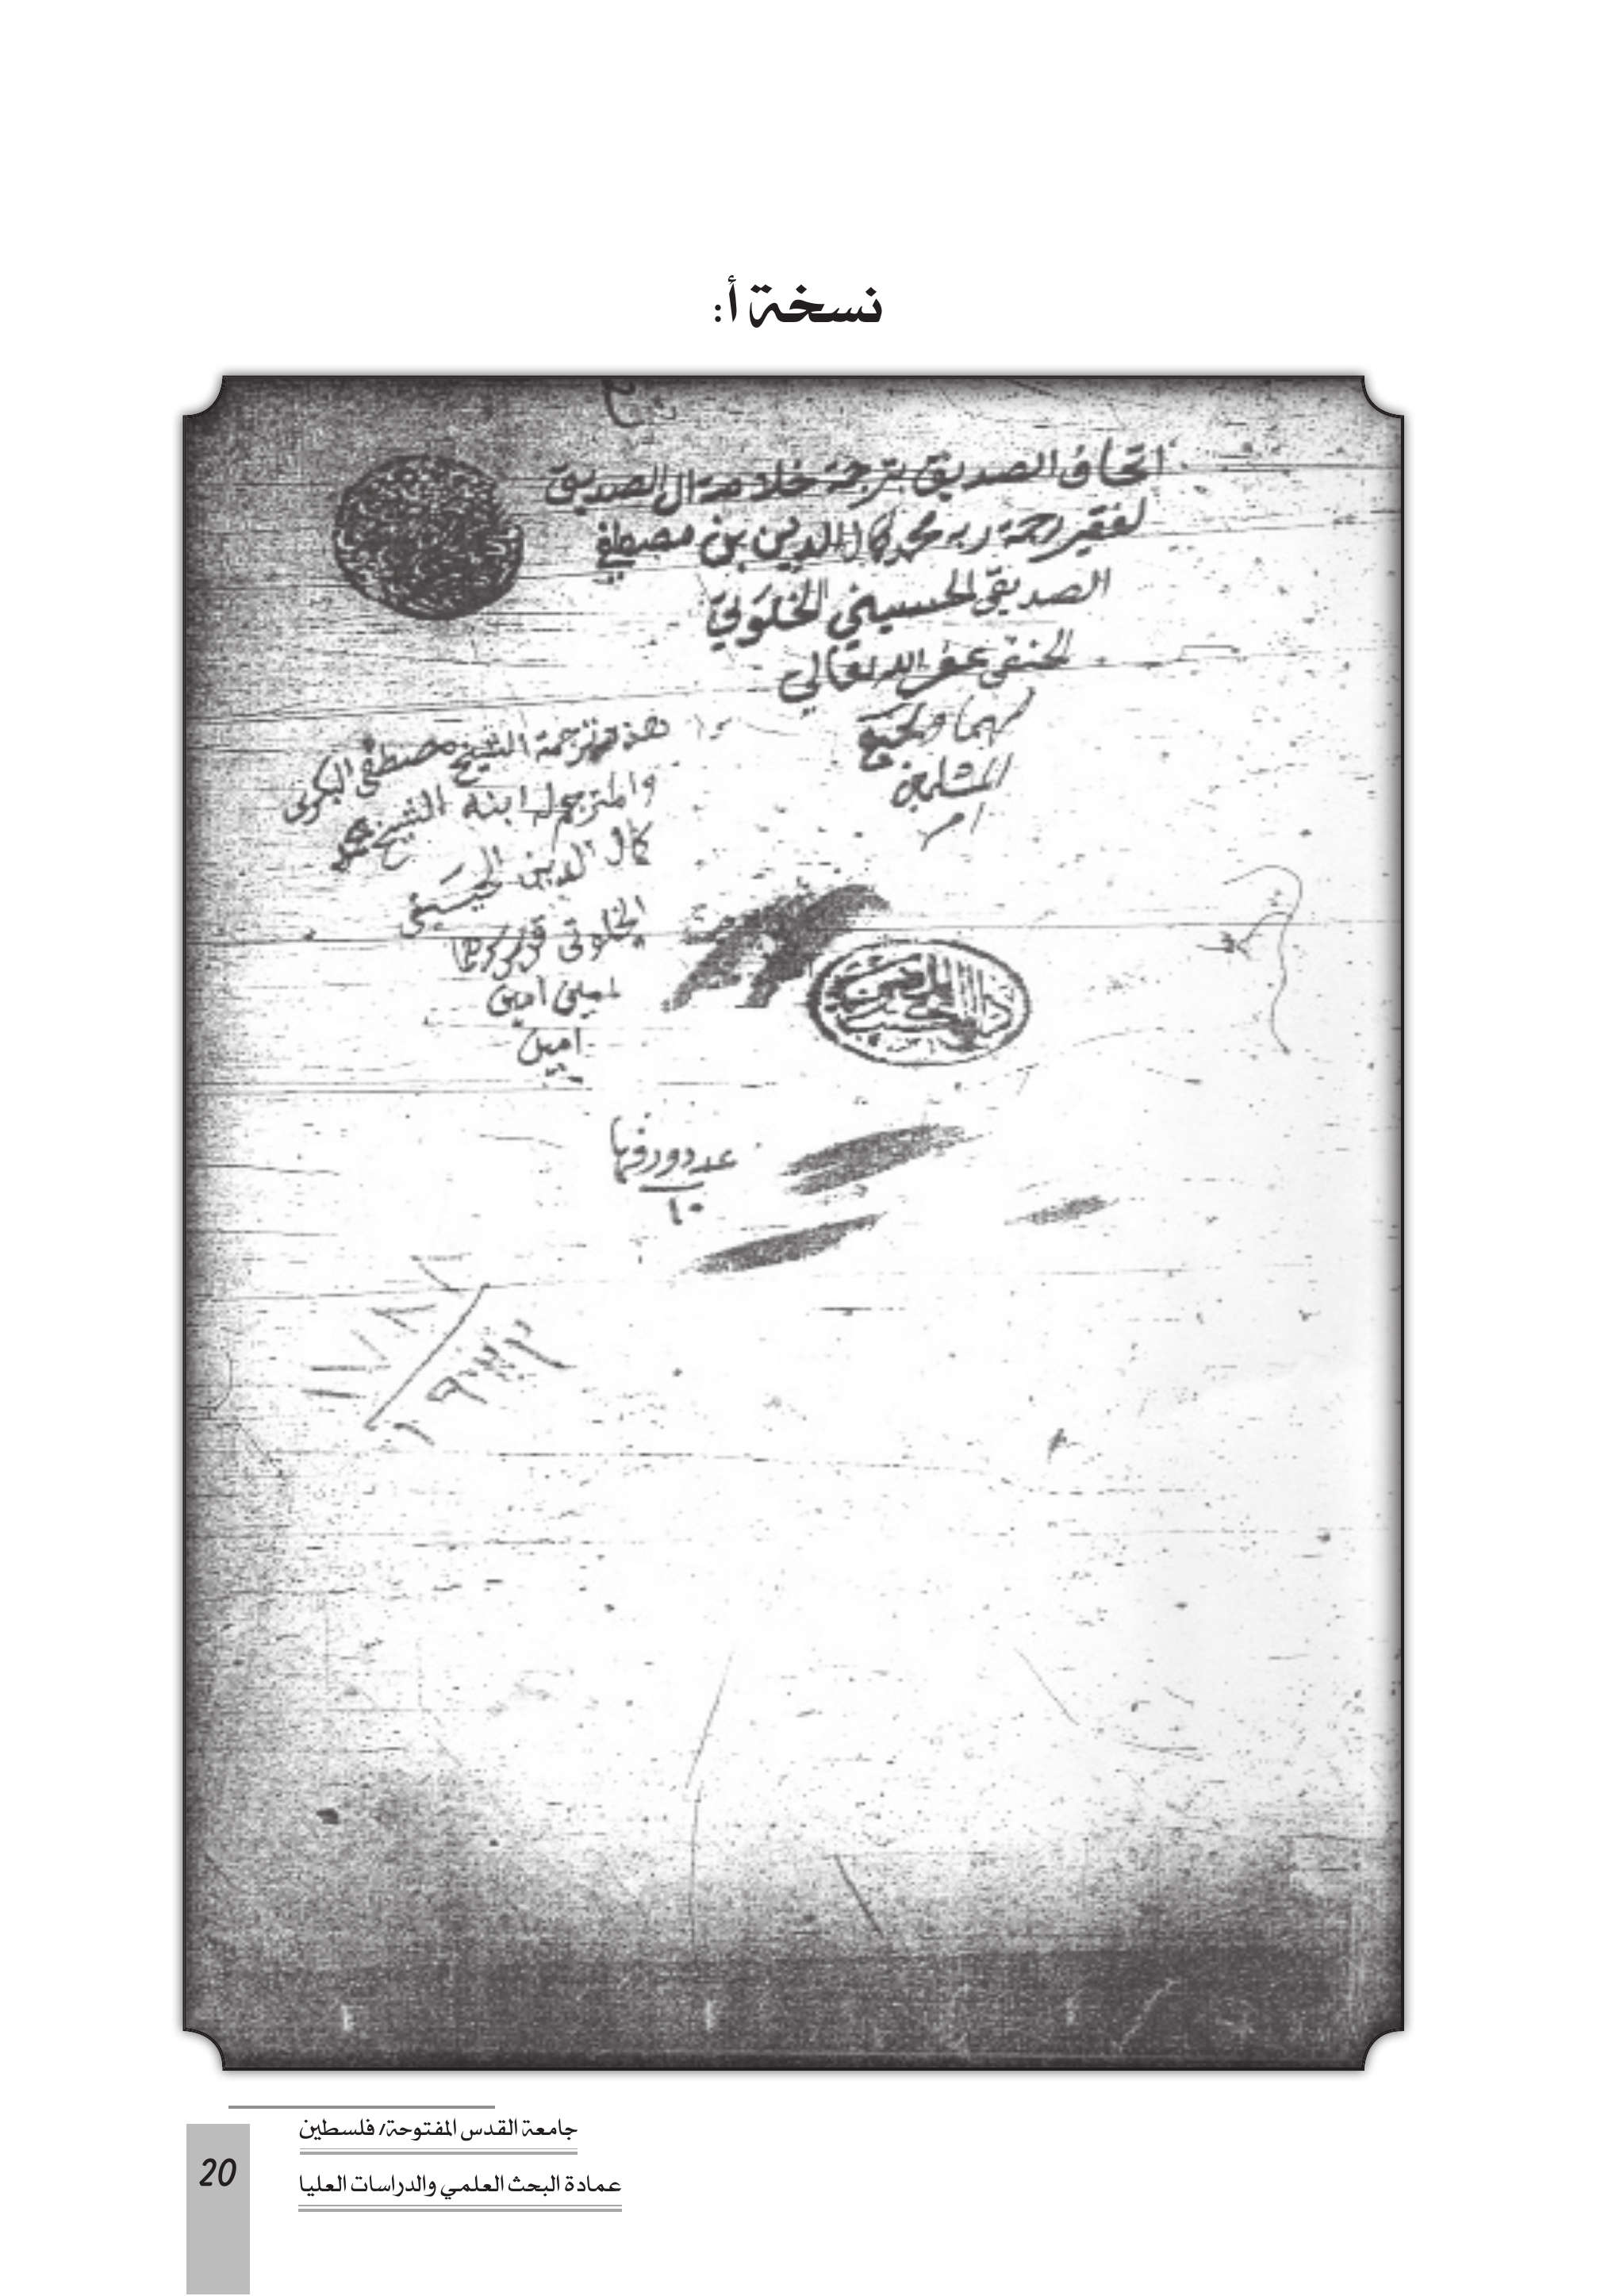 نسخة أ:
اتحاف الصديق بترجمة خلاصة ال الصديق
لفقير رحمة ربه محمد كمال الدين بن مصطفى
الصديقي الحسيني الخلوتي
الحنفي عفى الله تعالى
عنهما ولجميع
المسلمين
ام
هذه ترجمة الشيخ مصطفى البكري
والمترجم له ابنه الشيخ محمد
كمال الدين الحسيني
الخلوتي
امين
امين
عدد ورقها
١٠
جامعة القدس المفتوحة/ فلسطين
20
عمادة البحث العلمي والدراسات العليا